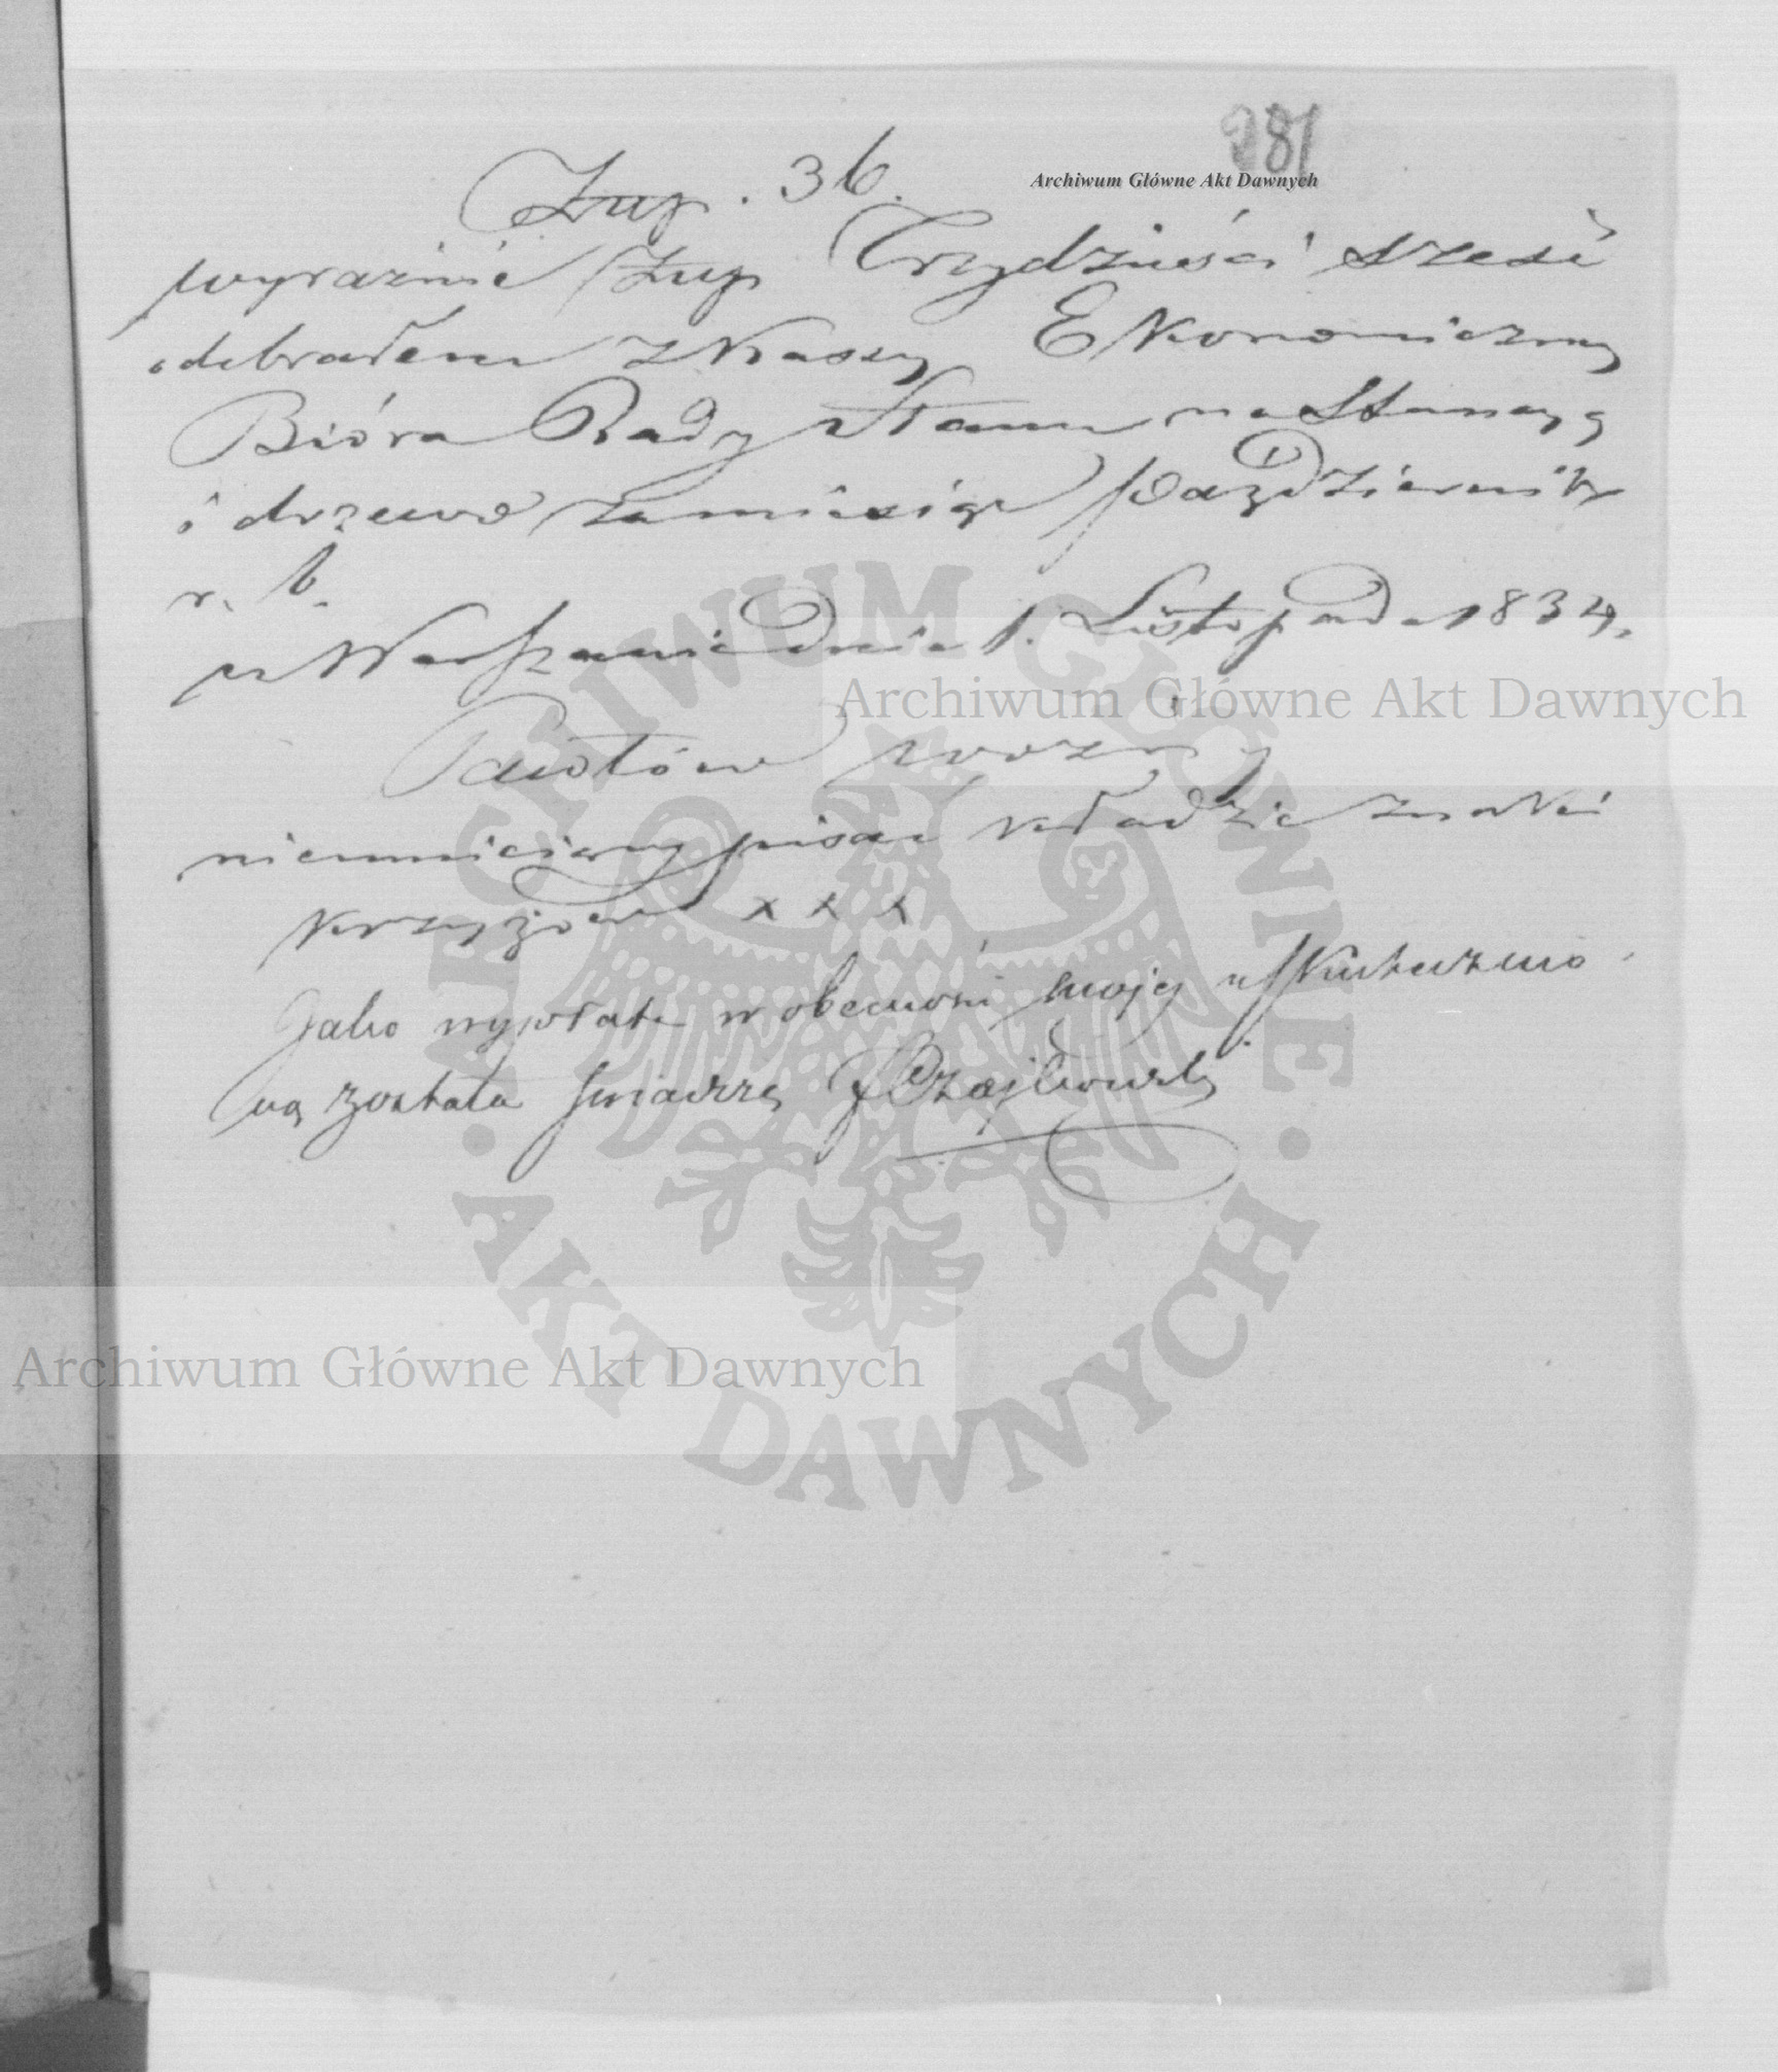 281
Archiwum Główne Akt Dawnych
Złp. 36.
wyraźnie Złp Trzydzieści sześć
odebrałem z Kassy Ekonomiczny
Bióra Rady Stanu na Stancyą
i drzewo za miesiąc Pazdziernik
r. b.
w Warszawie dnia 1. Listopada 1834.
Archiwum Główne Akt Dawnych
Pawłów wozny
nieumieiący pisać kładzie znaki
krzyżów x x x
Jako wypłata w obecności mojej uskutecznio
ną została świadczę
Archiwum Główne Akt Dawnych
ARCHIWUM GŁÓWNE
AKT DAWNYCH